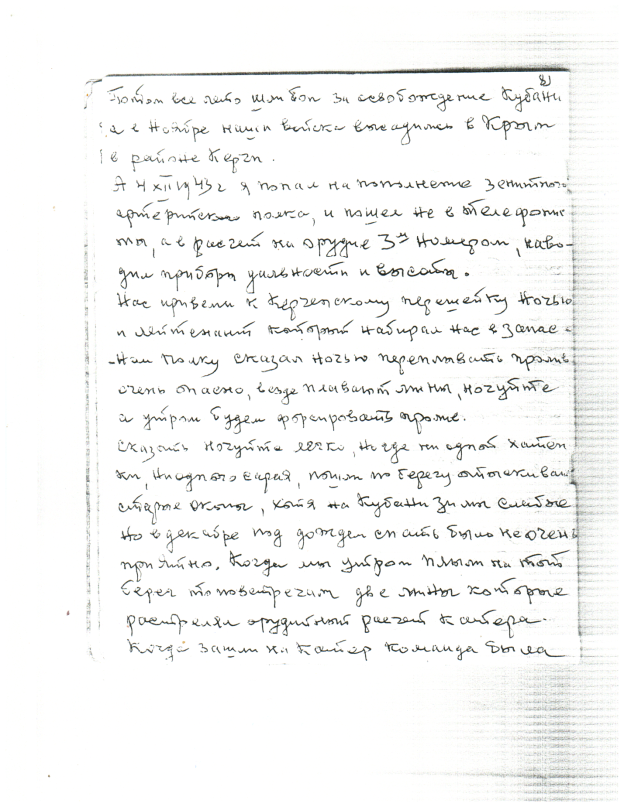 8
Потом все лето шли бои за освобождение Кубани
а в Ноябре наши войска высадились в Крым
в районе Керчи.
А 4 XII 1943 г я попал на пополнение зенитного
артерийского полка, и пошел не в телефонис
ты, а в расчет на орудие 3м номером, наво-
дил приборы дальности и высоты.
Нас привели к Керченскому перешейку ночью
и лейтенант который набирал нас в запас-
-ном полку сказал ночью переплывать пролив
очень опасно, везде плавают мины, ночуйте
а утром будем форсировать пролив.
Сказать ночуйте легко, но где ни одной хатен
ки, ни одного сарая, пошли по берегу отыскивать
старые окопы, хотя на Кубани зимы слабые
но в декабре под дождем спать было не очень
приятно. Когда мы утром плыли на тот
берег то повстречали две мины которые
расстрелял орудийный расчет катера.
Когда зашли на катер команда была